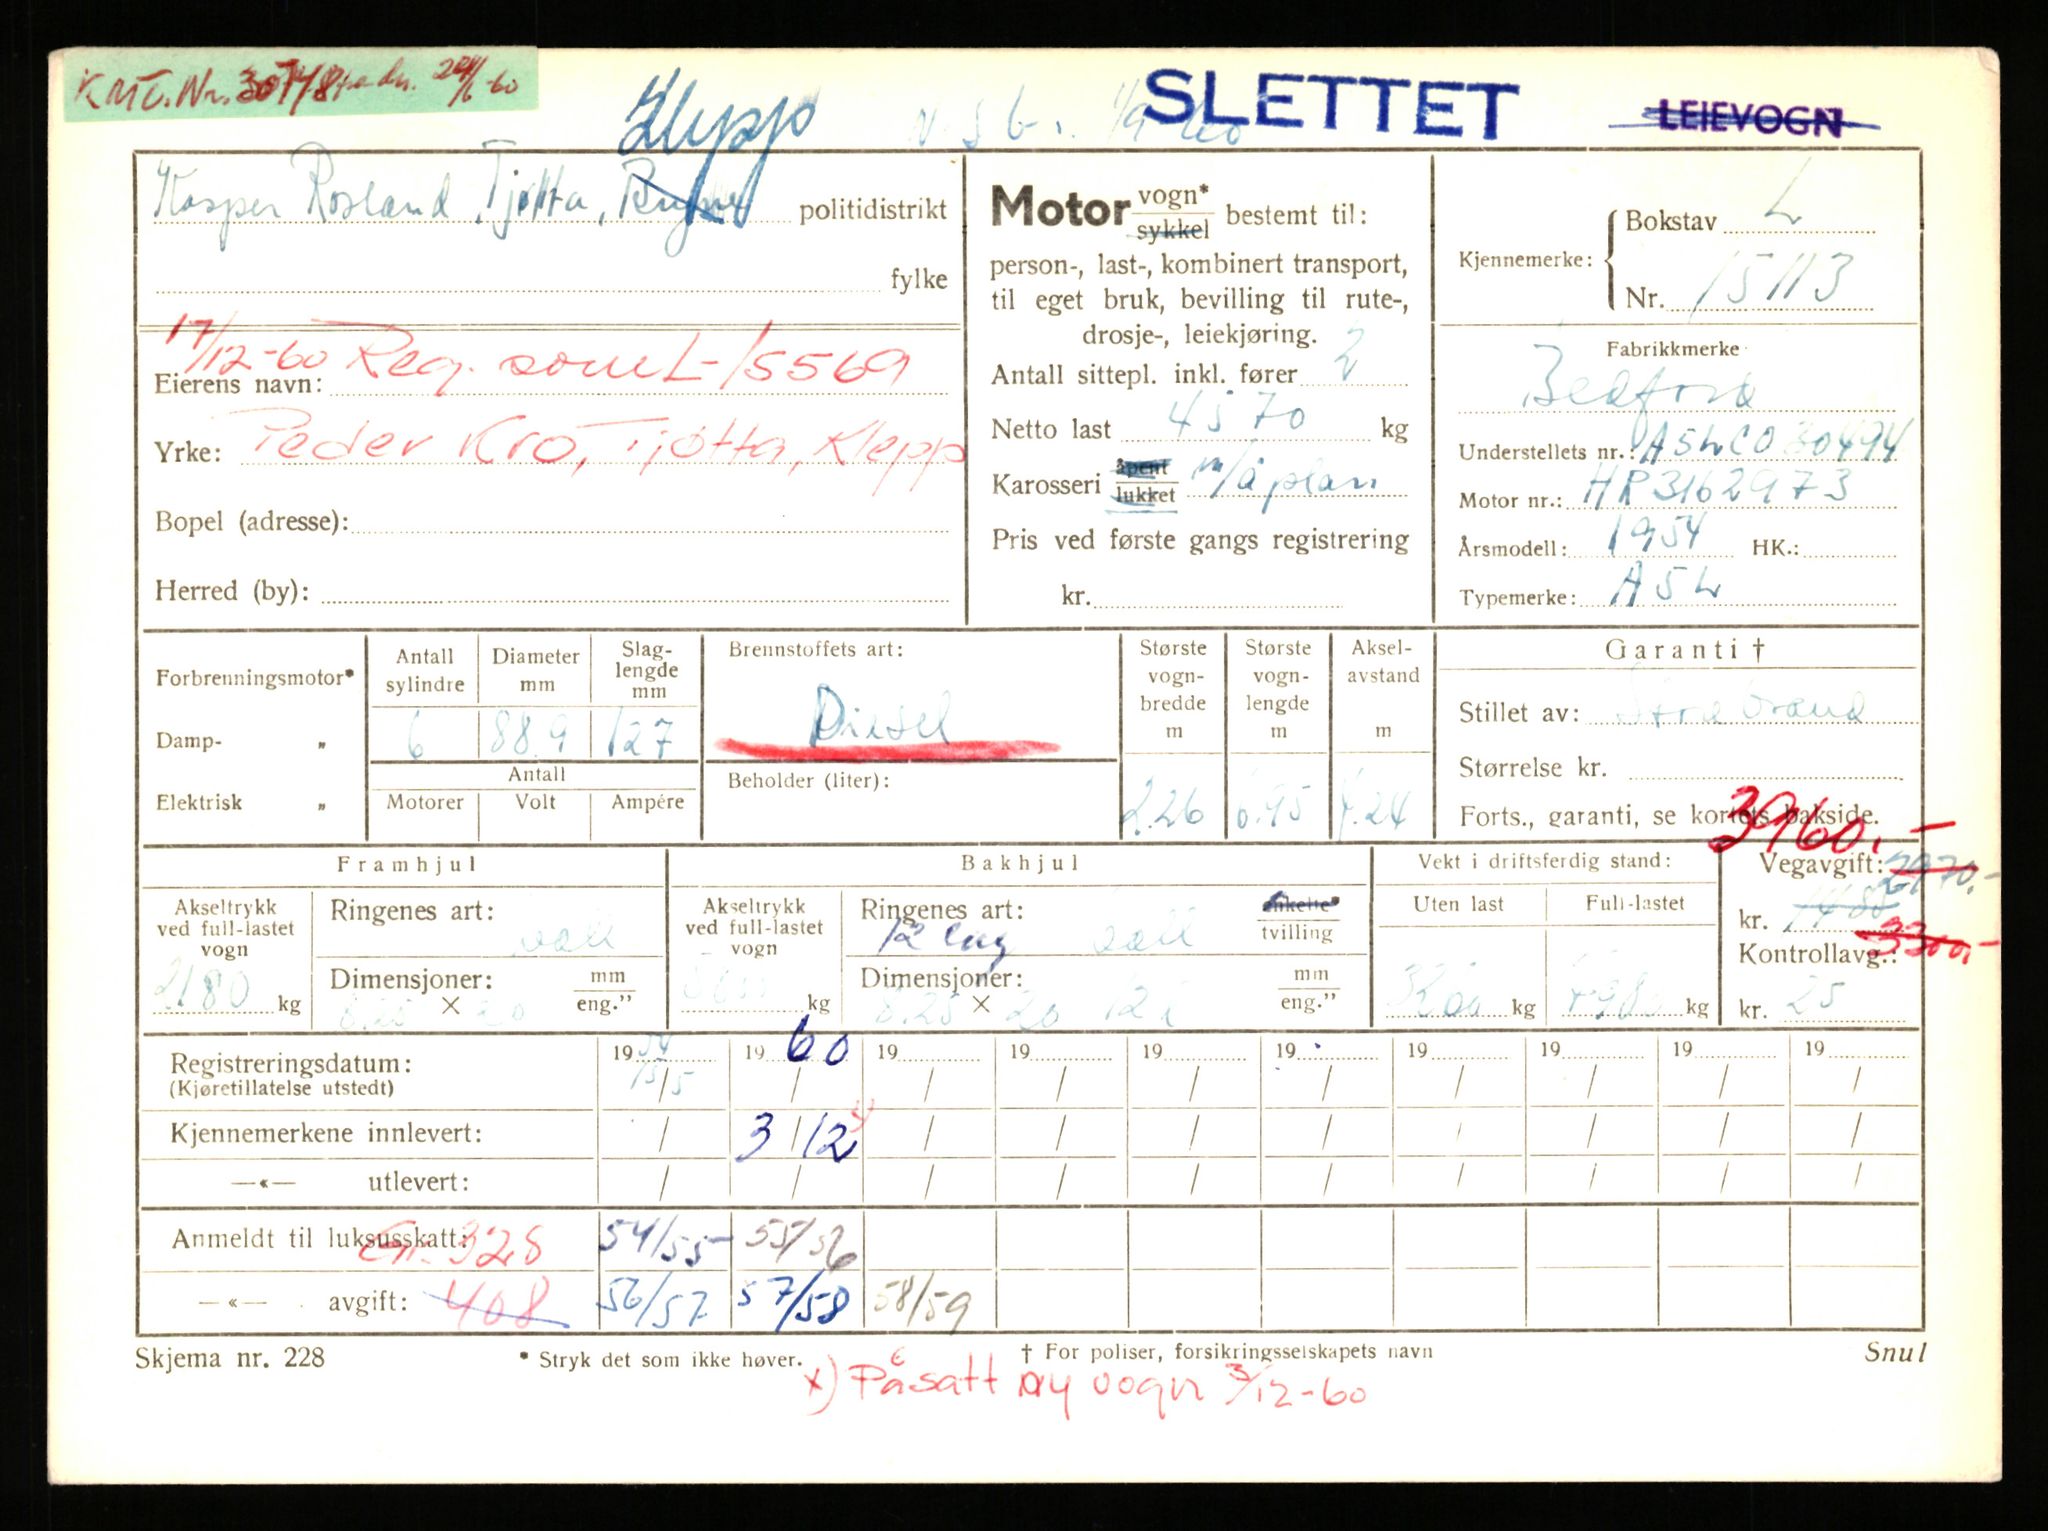 KMT. Nr. 30748 24/6-60
Klepp
SLETTET
LEIEVOGN
Kasper Rosland, Tjøtta, Bryne politidistrikt
fylke
17/12-60 Reg. som L-15569
Eierens navn:
Yrke: Peder Kro, Tjøtta, Klepp
Bopel (adresse):
Herred (by):
Motor vogn* sykkel bestemt til:
person-, last-, kombinert transport,
til eget bruk, bevilling til rute-,
drosje-, leiekjøring.
Antall sittepl. inkl. fører 2
Netto last 4570 kg
Karosseri åpent lukket m/å plan
Pris ved første gangs registrering
kr.
Kjennemerke: Bokstav L
Nr. 15113
Fabrikkmerke
Bedford
Understellets nr.: A5LCO 30494
Motor nr.: HR3162973
Årsmodell: 1954 HK.:
Typemerke: A5L
Forbrenningsmotor*
Damp- „
Elektrisk „
Antall sylindre 6
Diameter mm 88.9
Slag-lengde mm 127
Antall
Motorer Volt Ampére
Brennstoffets art:
Diesel
Beholder (liter):
Største vogn-bredde m 2.26
Største vogn-lengde m 6.95
Aksel-avstand m 4.24
Garanti †
Stillet av: Storebrand
Størrelse kr.
Forts., garanti, se kortets bakside.
3960.-
Framhjul
Akseltrykk ved full-lastet vogn 2180 kg
Ringenes art: Dimensjoner: 8.25 × 20 mm eng."
Bakhjul
Akseltrykk ved full-lastet vogn kg
Ringenes art: 12 lag enkelte* tvilling
Dimensjoner: 8.25 × 20 mm eng."
Vekt i driftsferdig stand:
Uten last kg
Full-lastet kg
Vegavgift: 2970.-
kr. 1485
3300,-
Kontrollavg.:
kr. 25
Registreringsdatum: 1954 1960 19 19 19 19 19 19 19 19
(Kjøretillatelse utstedt) 15/5 / / / / / / / / /
Kjennemerkene innlevert: / 3/12 / / / / / / / /
—«— utlevert: / / / / / / / / / /
Anmeldt til luksusskatt: Gr. 328 54/55 55/56
—«— avgift: 408 56/57 57/58 58/59
Skjema nr. 228
* Stryk det som ikke høver.
† For poliser, forsikringsselskapets navn
Snul
x) Påsatt ny vogn 3/12-60